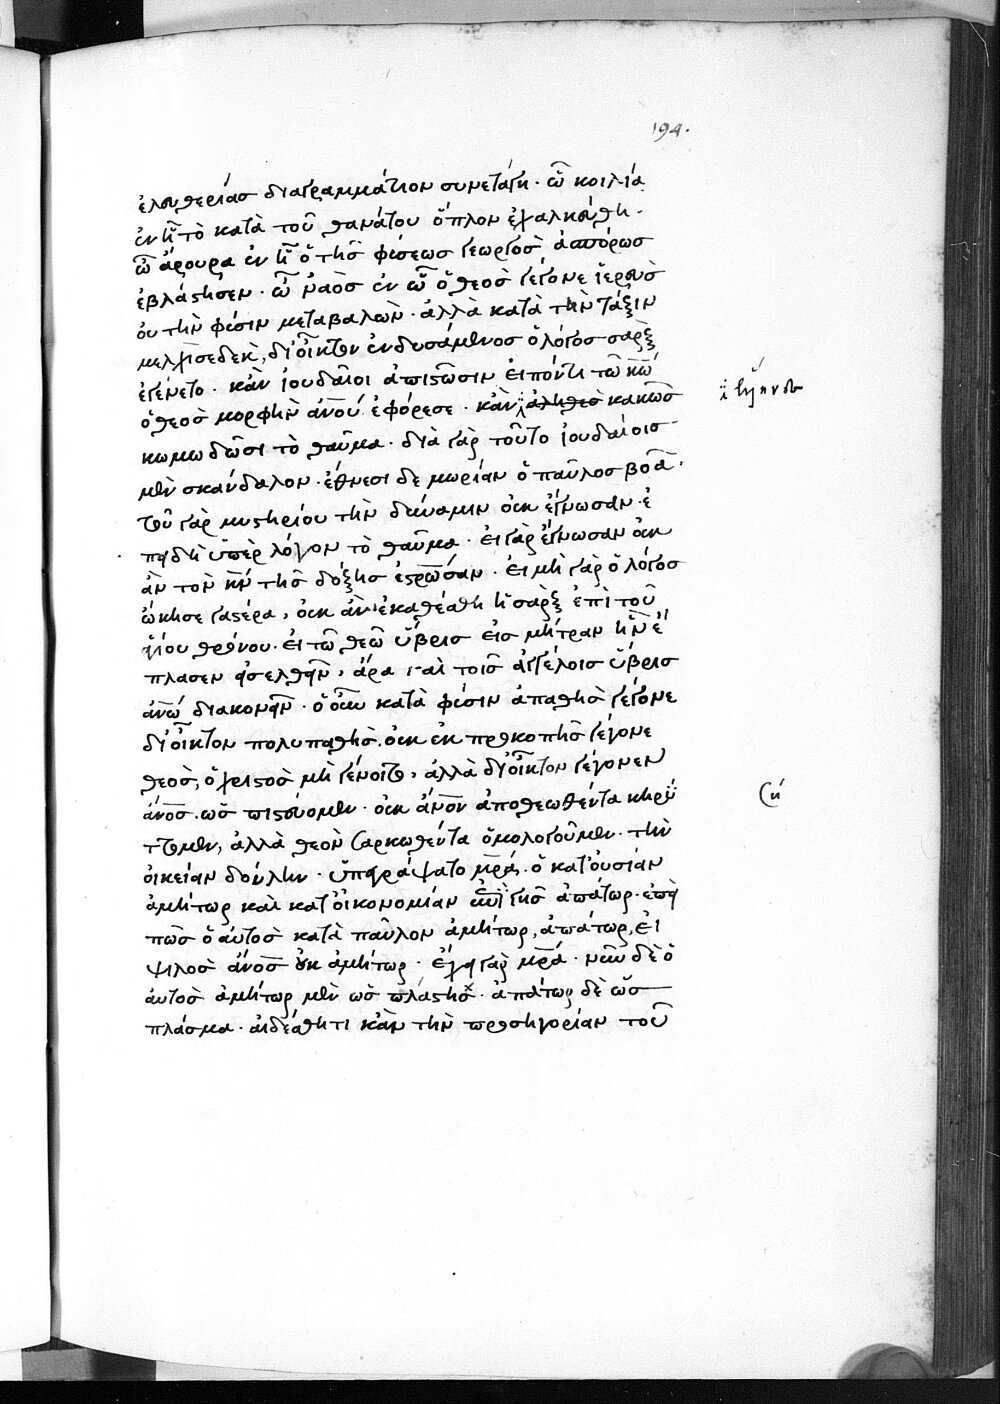 194.
ἐλευθερίας διαγραμμάτιον συνετάγη. ὦ κοιλία
ἐν ᾗ τὸ κατὰ τοῦ θανάτου ὅπλον ἐχαλκεύθη.
ὦ ἄρουρα ἐν ᾗ ὁ τῆς φύσεως γεωργὸς ἀσπόρως
ἐβλάστησεν. ὦ ναὸς ἐν ᾧ ὁ θεὸς γέγονε ἱερεὺς
οὐ τὴν φύσιν μεταβαλὼν. ἀλλὰ κατὰ τὴν τάξιν
μελχισεδεκ, δι' οἶκτον ἐνδυσάμενος ὁ λόγος σαρξ
ἐγένετο. κἂν ἰουδαῖοι ἀπιστῶσιν εἰπόντι τῶ κ̅ω̅
ὁ θεὸς μορφὴν ἀν̅ου̅ ἐφόρεσε. κἂν κακῶς
κωμωδῶσι τὸ θαῦμα. διὰ γὰρ τοῦτο ἰουδαίοις
μὲν σκάνδαλον. ἔθνεσι δε μωρίαν ὁ παῦλος βοᾶ.
τοῦ γὰρ μυστηρίου τὴν δύναμιν οὐκ ἔγνωσαν. ἐ
πειδὴ ὑπὲρ λόγον τὸ θαῦμα. εἰ γὰρ ἔγνωσαν οὐκ
ἂν τὸν κ̅ν̅ τῆς δόξης ἐστρωσαν. εἰ μὴ γὰρ ὁ λόγος
ὤκησε γαστέρα, οὐκ ἂν ἐκαθέσθη ἡ σὰρξ ἐπὶ τοῦ
ἁγίου θρόνου. εἰ τῶ θεῶ ὕβρις εἰς μήτραν ἣν ἔ
πλασεν εἰσελθεῖν, ἄρα καὶ τοῖς ἀγγέλοις ὕβρις
ἀν̅ω̅ διακονεῖν. ὁ οὖν κατὰ φύσιν ἀπαθὴς γέγονε
δι' οἶκτον πολυπαθὴς. οὐκ ἐκ προκοπῆς γέγονε
θεὸς, ὁ χριστὸς μὴ γένοιτο, ἀλλὰ δι' οἶκτον γέγονεν
ἄν̅ο̅ς̅ ὡς πιστεύομεν. οὐκ ἄν̅ο̅ν̅ ἀποθεωθέντα κηρύ
ττομεν, ἀλλὰ θεὸν σαρκωθέντα ὁμολογοῦμεν. τὴν
οἰκείαν δούλην. ὑπεγράψατο μ̅ρ̅α̅. ὁ κατ' οὐσίαν
ἀμήτωρ καὶ κατ' οἰκονομίαν ἐπὶ γῆς ἀπάτωρ. ἐπεὶ
πῶς ὁ αὐτὸς κατὰ παῦλον ἀμήτωρ, ἀπάτωρ, εἰ
ψιλὸς ἄν̅ο̅ς̅ οὐκ ἀμήτωρ. ἔχει γὰρ μ̅ρ̅α̅. νῦν δὲ ὁ
αὐτὸς ἀμήτωρ μὲν ὡς πλάστης. ἀπάτωρ δὲ ὡς
πλάσμα. αἰδέσθητι κἂν τὴν προσηγορίαν τοῦ